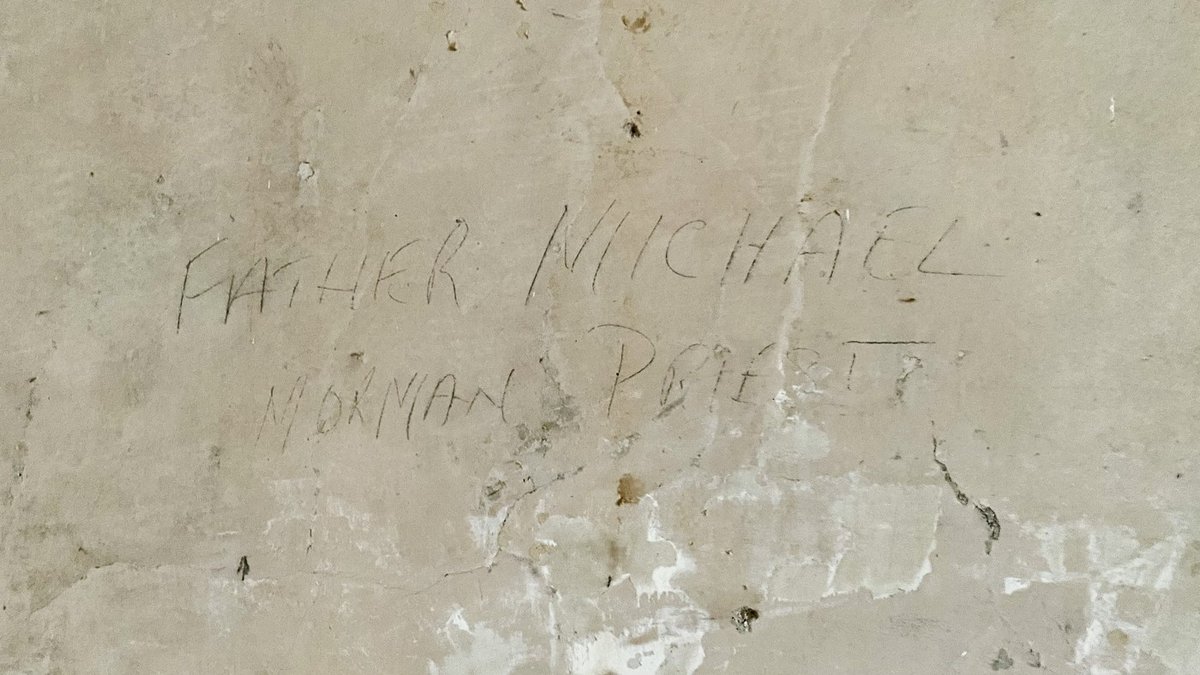 FATHER MICHAEL
MORMAN PRIEST